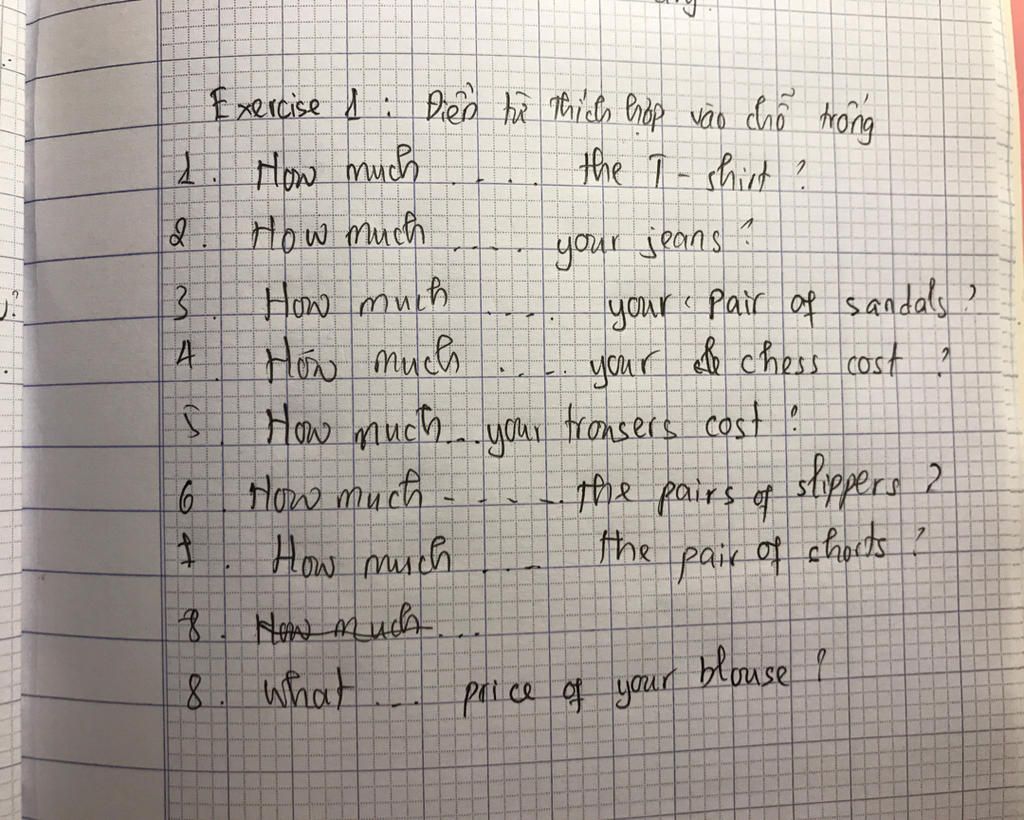 Exercise 1 : Điền từ thích hợp vào chỗ trống
1. How much .... the T-shirt ?
2. How much .... your jeans ?
3. How much .... your pair of sandals ?
4. How much .... your chess cost ?
5. How much... your tronsers cost ?
6 How much - - - - the pairs of slippers ?
7. How much .... the pair of chorts ?
8. How much ...
8. What ... price of your blouse ?